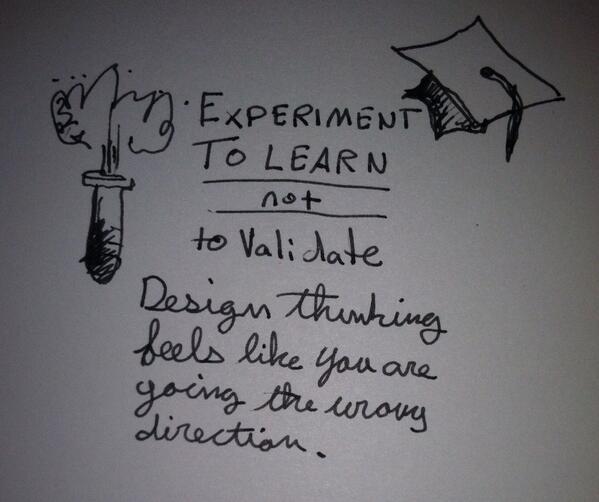 EXPERIMENT
TO LEARN
not
to Validate
Design thinking
feels like you are
going the wrong
direction.